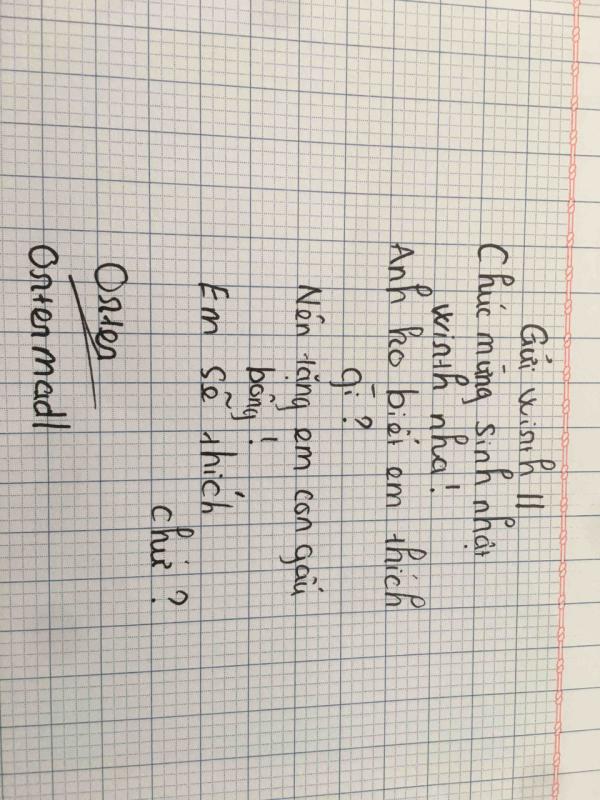 Gửi winth 11
Chúc mừng sinh nhật
winth nha!
Anh ko biết em thích
gì?
Nên tặng em con gấu
bông!
Em sẽ thích
chứ?
Osten
Ostermadl